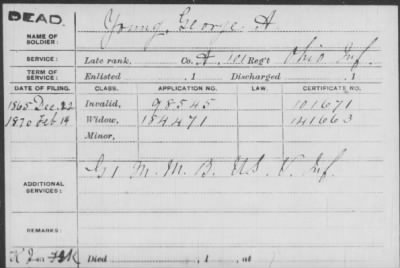 DEAD.
NAME OF SOLDIER: Young, George A.
SERVICE: Late rank, Co. A, 101 Reg't Ohio Inf.
TERM OF SERVICE: Enlisted , 1 Discharged , 1
DATE OF FILING. CLASS. APPLICATION NO. LAW. CERTIFICATE NO.
1865 Dec. 22 Invalid, 98545 101671
1870 Feb 14 Widow, 184471 141663
Minor,
ADDITIONAL SERVICES: G 1 M. M. B. US V. Inf.
REMARKS:
Died , 1 , at